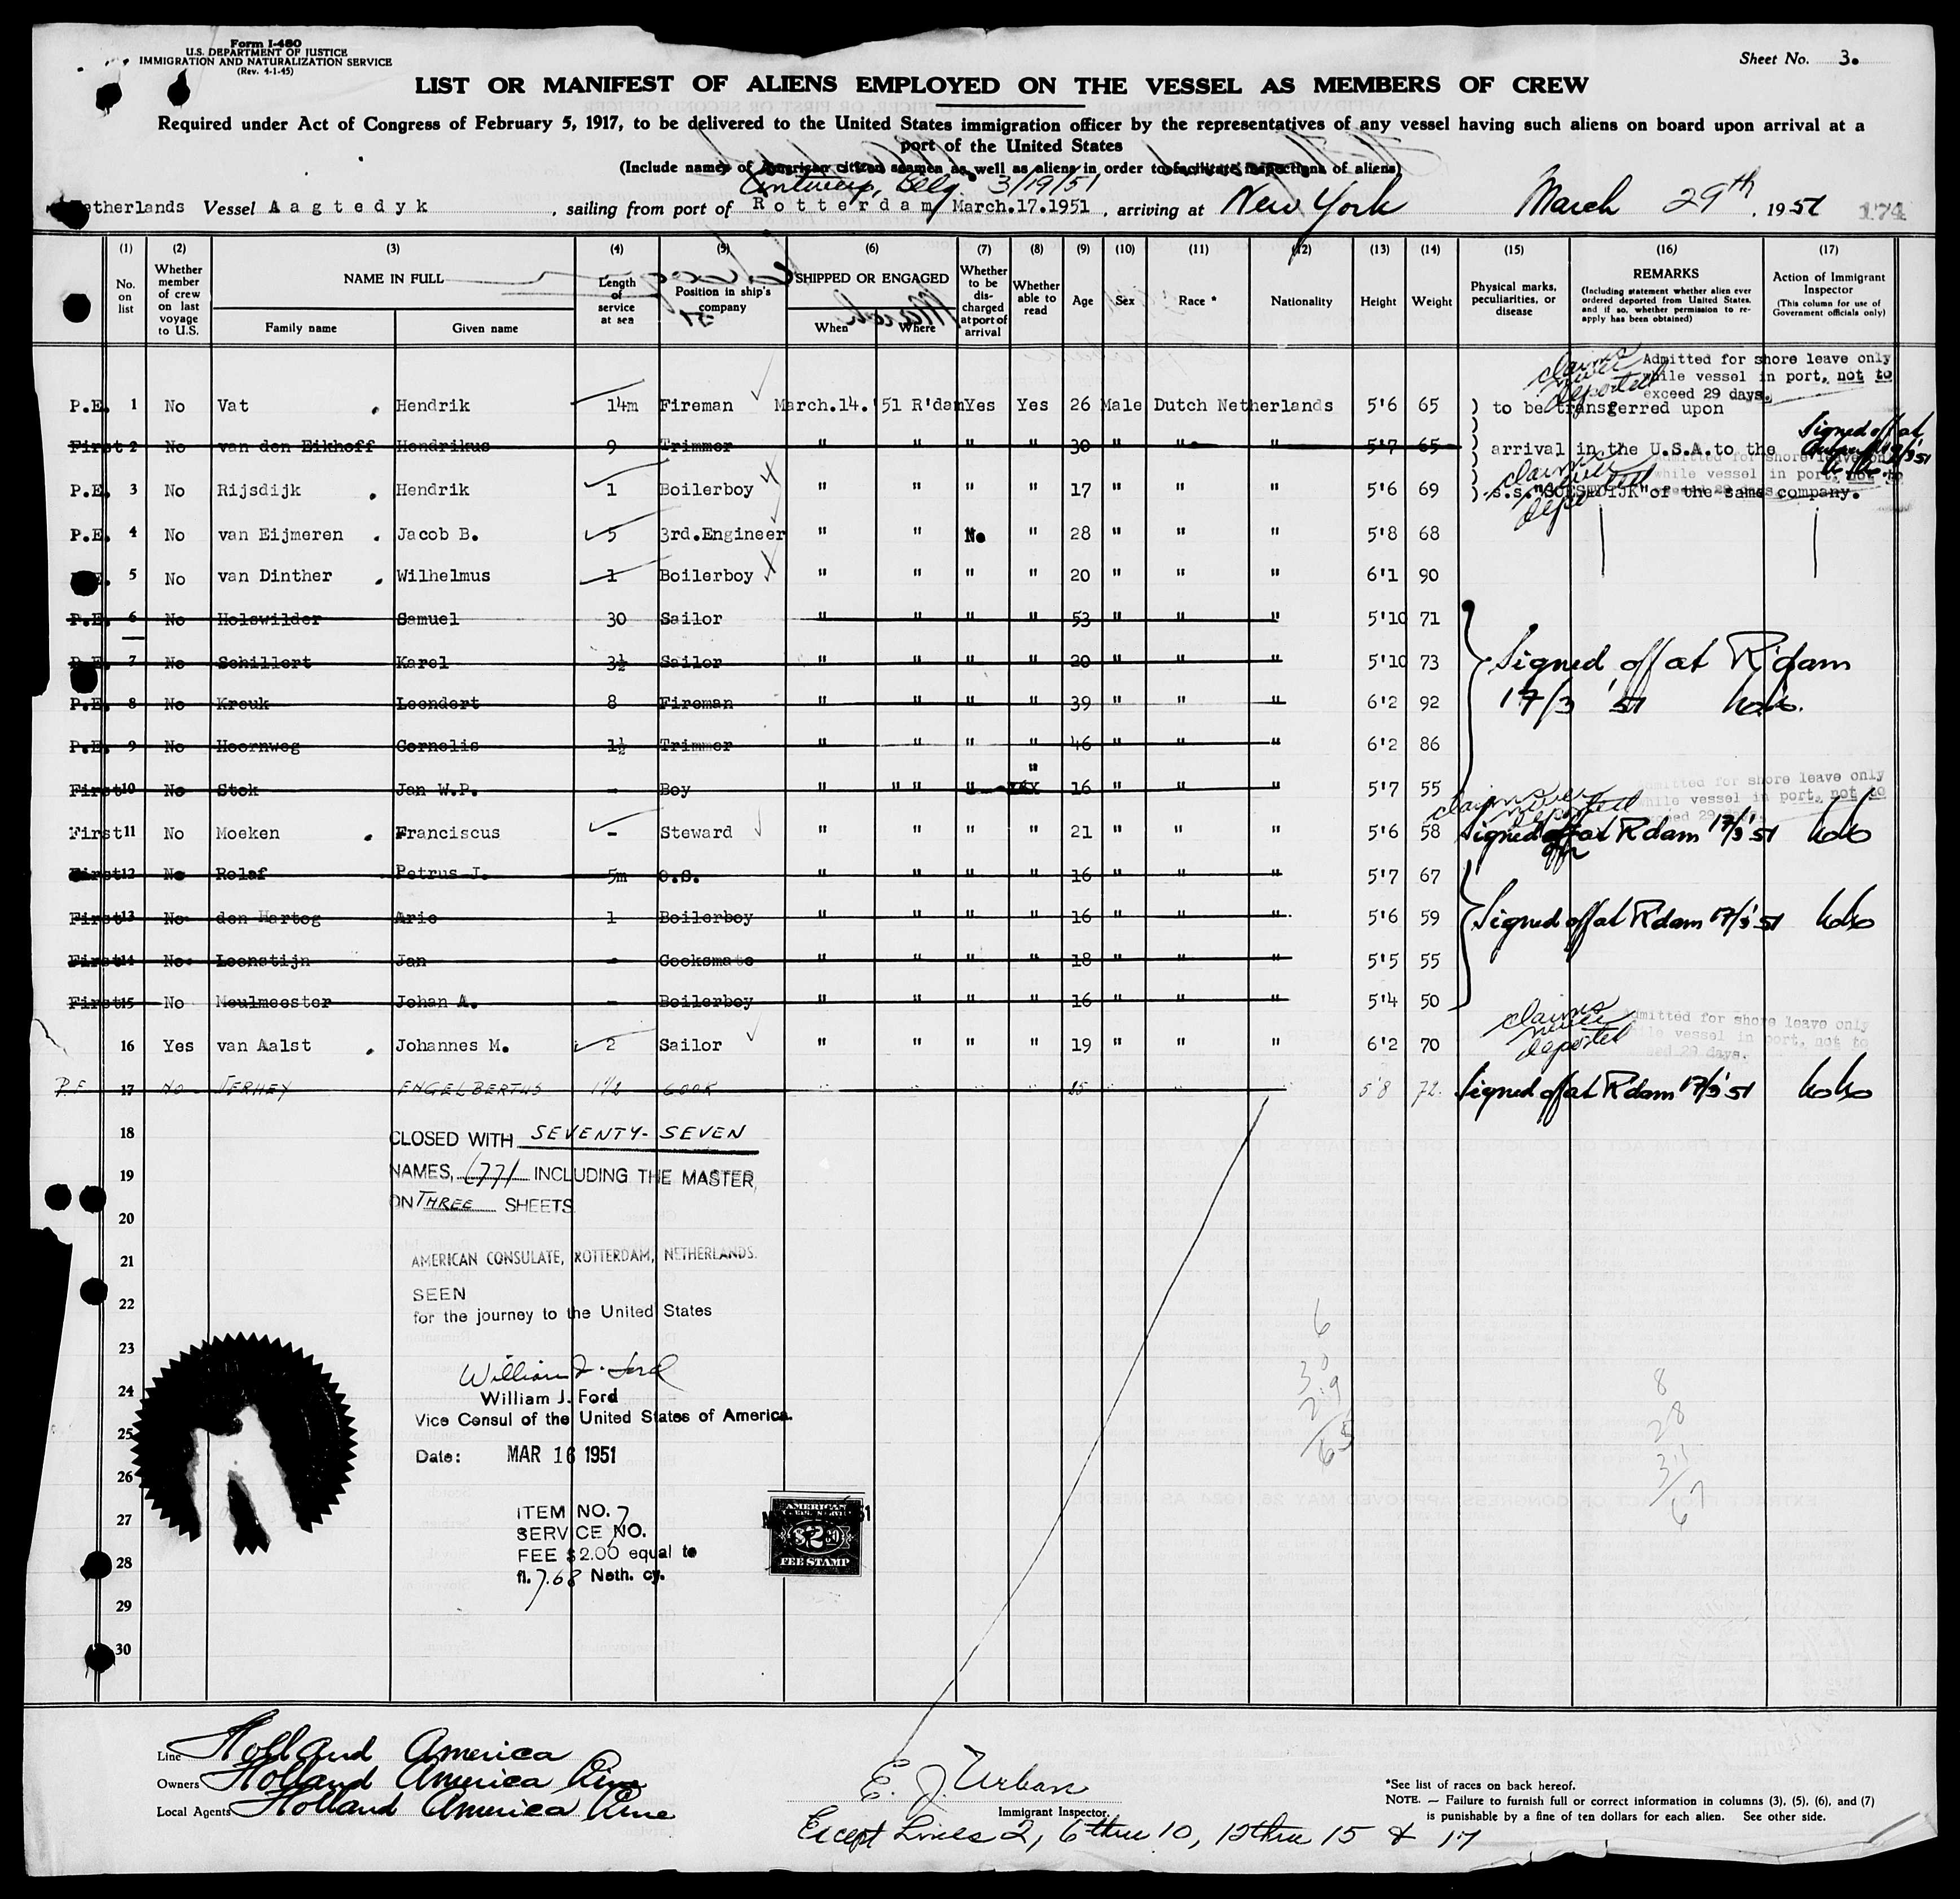 Form I-480
U.S. DEPARTMENT OF JUSTICE
IMMIGRATION AND NATURALIZATION SERVICE
(Rev. 4-1-45)
Sheet No. 3.
LIST OR MANIFEST OF ALIENS EMPLOYED ON THE VESSEL AS MEMBERS OF CREW
Required under Act of Congress of February 5, 1917, to be delivered to the United States immigration officer by the representatives of any vessel having such aliens on board upon arrival at a
port of the United States
(Include names of American citizen seamen as well as aliens in order to facilitate inspections of aliens)
Antwerp, Belg. 3/19/51
Netherlands Vessel Aagtedyk, sailing from port of Rotterdam March.17.1951, arriving at New York March 29th, 1951 174
(1) (2) (3) (4) (5) (6) (7) (8) (9) (10) (11) (12) (13) (14) (15) (16) (17)
No. on list
Whether member of crew on last voyage to U.S.
NAME IN FULL
Family name Given name
Length of service at sea
Position in ship's company
SHIPPED OR ENGAGED
When Where
Whether to be discharged at port of arrival
Whether able to read
Age Sex Race * Nationality Height Weight
Physical marks, peculiarities, or disease
REMARKS
(Including statement whether alien ever ordered deported from United States, and if so, whether permission to re-apply has been obtained)
Action of Immigrant Inspector
(This column for use of Government officials only)
claims never deported
Admitted for shore leave only
while vessel in port, not to
exceed 29 days.
P.E. 1 No Vat Hendrik 14m Fireman March.14.'51 R'dam Yes Yes 26 Male Dutch Netherlands 5'6 65 ) to be transferred upon
First 2 No van den Eikhoff Hendrikus 9 Trimmer " " " " 30 " " " 5'7 65 ) arrival in the U.S.A. to the
Signed off at
Admitted for shore leave only
while vessel in port, not to
claims never deported
P.E. 3 No Rijsdijk Hendrik 1 Boilerboy " " " " 17 " " " 5'6 69 ) s.s."SOESTDIJK"of the same company.
P.E. 4 No van Eijmeren Jacob B. 5 3rd.Engineer " " No " 28 " " " 5'8 68
P.E. 5 No van Dinther Wilhelmus 1 Boilerboy " " " " 20 " " " 6'1 90
P.E. 6 No Holswilder Samuel 30 Sailor " " " " 53 " " " 5'10 71
P.E. 7 No Schillert Karel 3½ Sailor " " " " 20 " " " 5'10 73
Signed off at R'dam
P.E. 8 No Kreuk Leendert 8 Fireman " " " " 39 " " " 6'2 92
17/3 '51
P.E. 9 No Hoornweg Cornelis 1½ Trimmer " " " " 46 " " " 6'2 86
First 10 No Stok Jan W.P. - Boy " " " " " 16 " " " 5'7 55
Admitted for shore leave only
while vessel in port, not to
exceed 29 days
claims never deported
First 11 No Moeken Franciscus - Steward " " " " 21 " " " 5'6 58 Signed off at R'dam 17/3'51
First 12 No Rolaf Petrus J. 5m O.S. " " " " 16 " " " 5'7 67
First 13 No den Hartog Arie 1 Boilerboy " " " " 16 " " " 5'6 59 Signed off at R'dam 17/3'51
First 14 No Leenstijn Jan - Cooksmate " " " " 18 " " " 5'5 55
First 15 No Meulmeester Johan A. - Boilerboy " " " " 16 " " " 5'4 50
claims never deported
Admitted for shore leave only
while vessel in port, not to
exceed 29 days.
16 Yes van Aalst Johannes M. 2 Sailor " " " " 19 " " " 6'2 70
P.E. 17 No JERHEY ENGELBERTUS 1½ COOK " " " " " " " 5'8 72 Signed off at R'dam 17/3'51
18
CLOSED WITH SEVENTY-SEVEN
19
NAMES, (77) INCLUDING THE MASTER,
ON THREE SHEETS
20
21
AMERICAN CONSULATE, ROTTERDAM, NETHERLANDS.
SEEN
22
for the journey to the United States
23
William J. Ford
24
William J. Ford
Vice Consul of the United States of America.
25
Date: MAR 16 1951
26
ITEM NO. 7
27
SERVICE NO.
FEE $2.00 equal to
28
fl. 7.68 Neth. cy.
AMERICAN
$2.00
FEE STAMP
29
30
6
30
29
65
8
28
31
67
Line Holland America
Owners Holland America Line
Local Agents Holland America Line
E. J. Urban
Immigrant Inspector.
Except Lines 2, 6 thru 10, 12 thru 15 & 17
*See list of races on back hereof.
NOTE. — Failure to furnish full or correct information in columns (3), (5), (6), and (7)
is punishable by a fine of ten dollars for each alien. See other side.